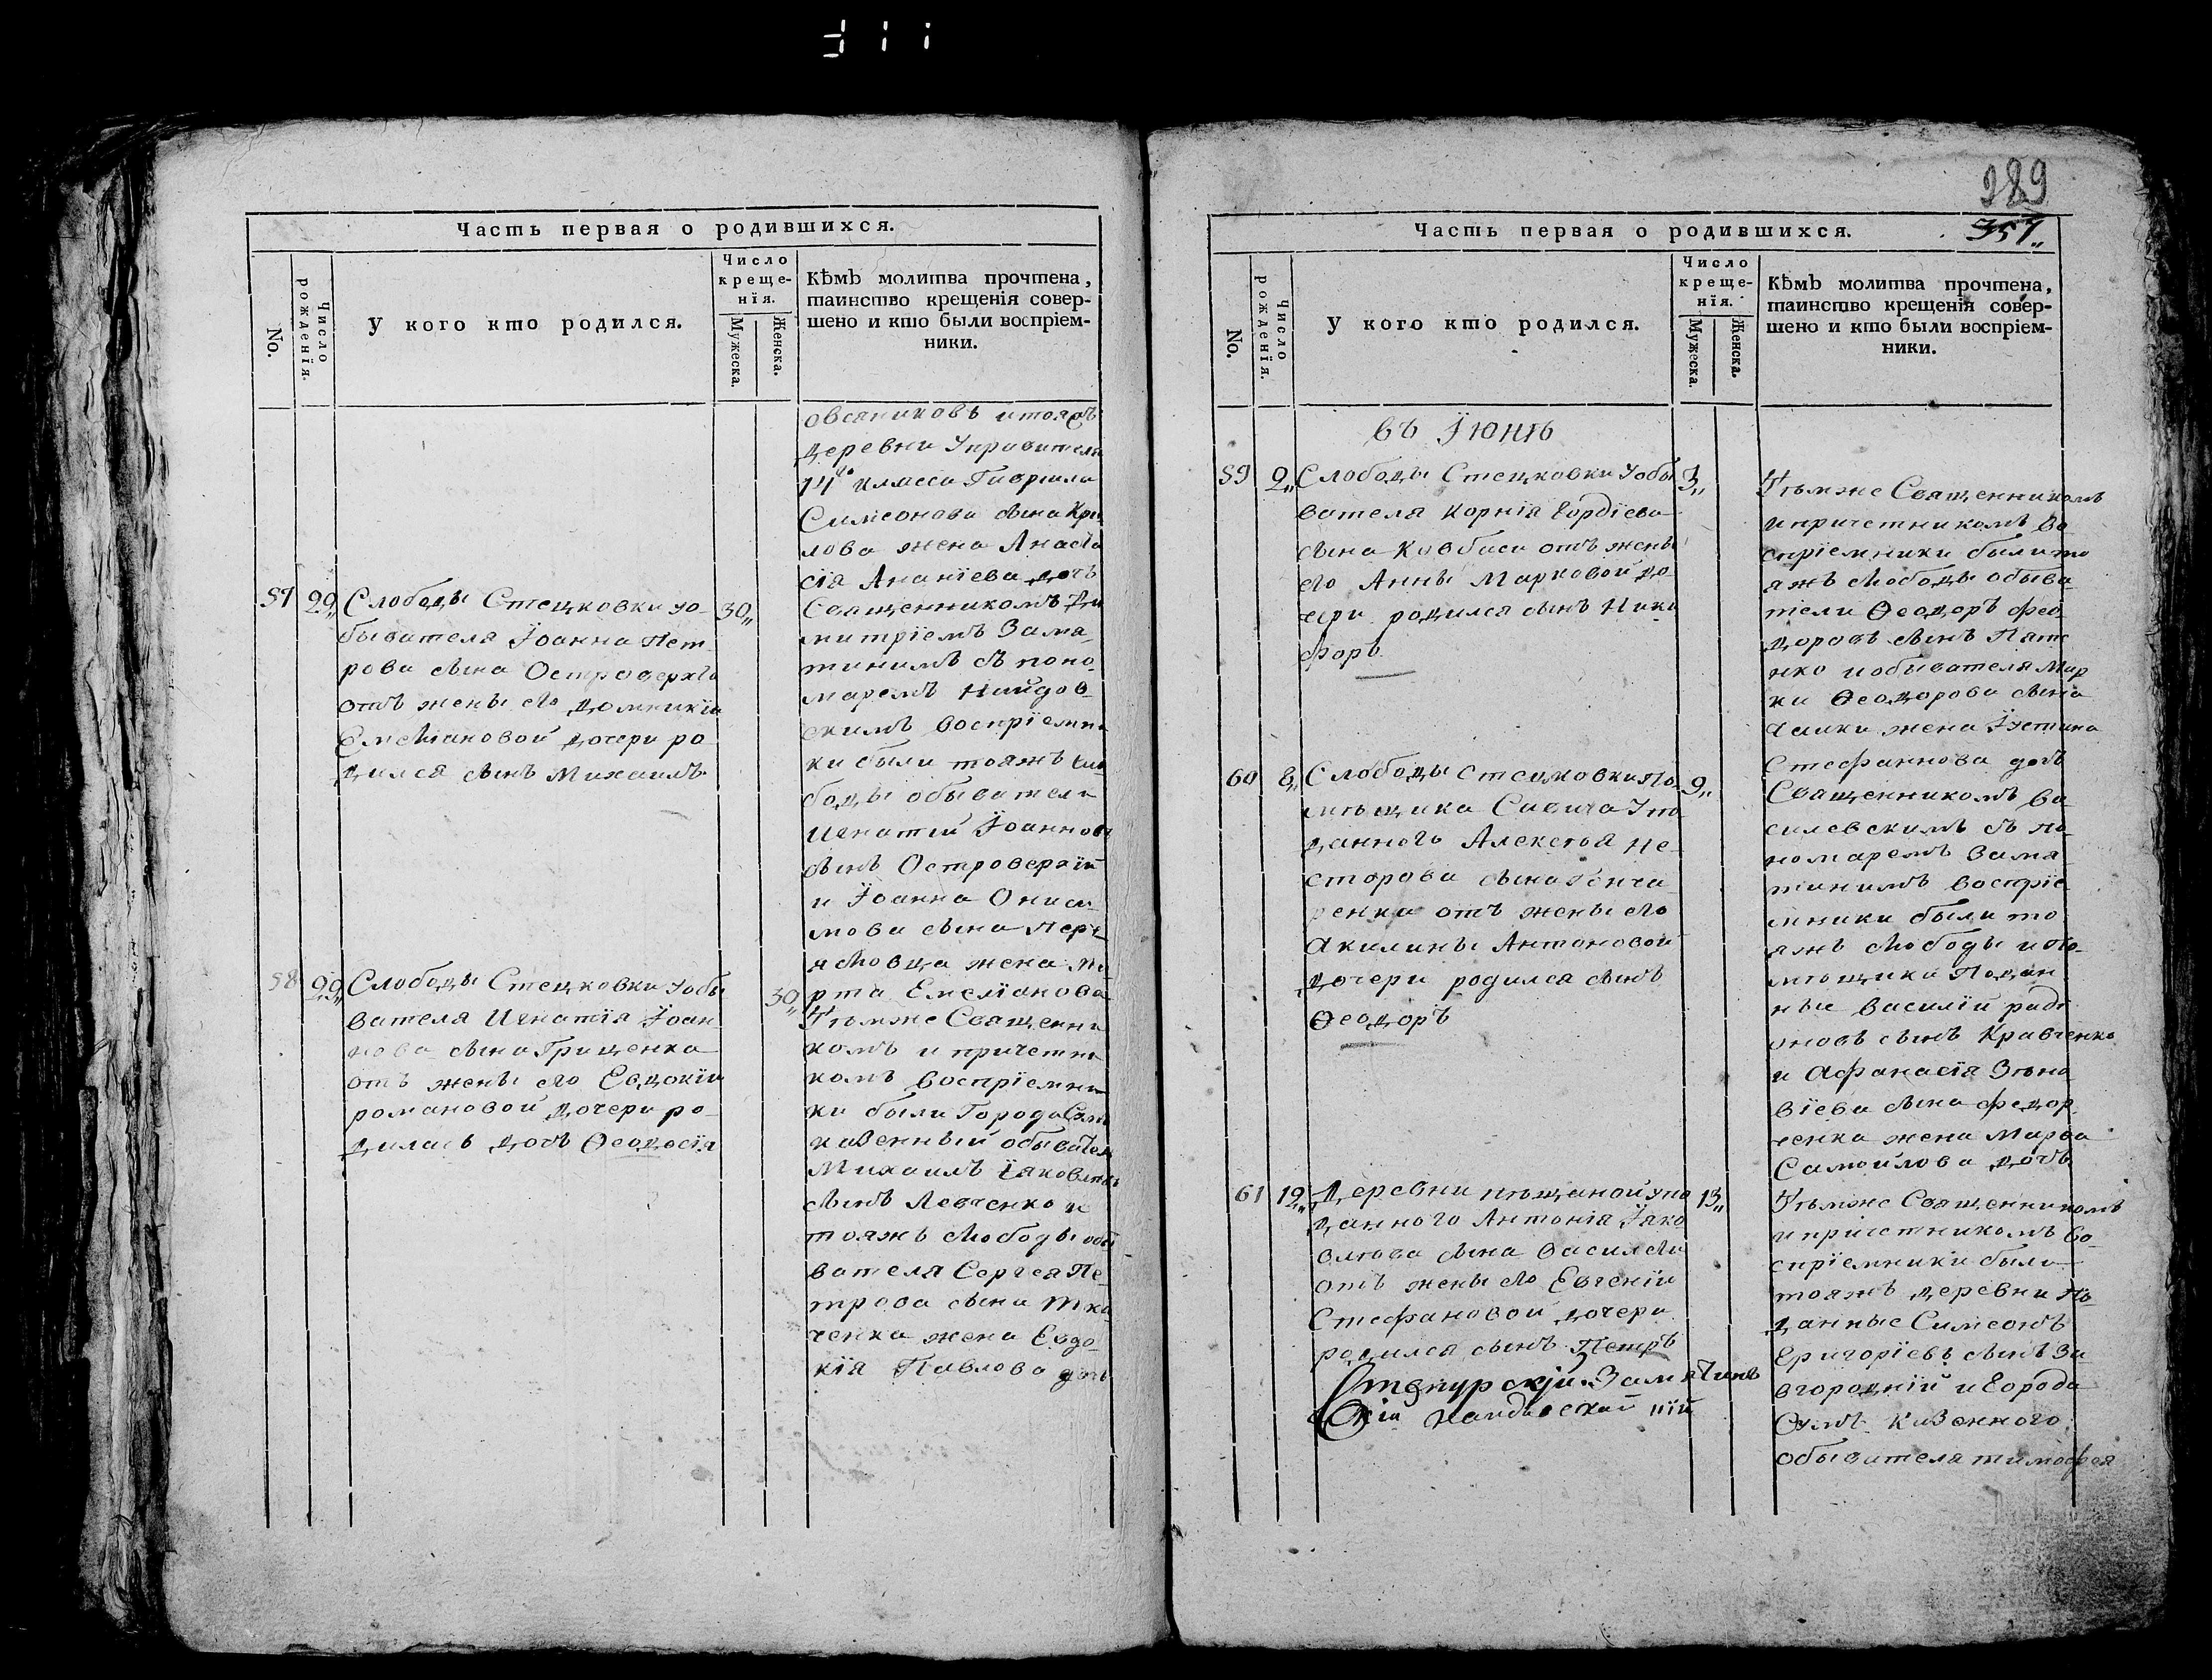 Часть первая о родившихся.
No.
Число рожденїя.
У кого кто родился.
Число
креще-
нїя.
Мужеска.
Женска.
Кѣмъ молитва прочтена,
таинство крещенїя совер-
шено и кто были воспрїем-
ники.
овсяниковъ и тояжъ
деревни Управителя
14го класса Гаврiила
Симеонова сына Кри
лова жена Анаста
сїя Ананїева дочь
57 29 Слободы Стецковки уо-
бывателя Їоанна Пет
рова сына Островерхаго
отъ жены его Домникїи
Емелїановой дочери ро
дился сынъ Михаилъ
30
Священникомъ Ди
митрїемъ Замя
тинимъ съ поно
маремъ Найдов
скимъ воспрїемни
ки были тояжъ сло
боды обыватели
Игнатїй Їоанновъ
сынъ Островерхїй
и Їоанна Ониси
мова сына Пере
яславца жена Ма
рта Емелїанова
58 29 Слободы Стецковки уобы
вателя Игнатїя Їоан
нова сына Грищенка
отъ жены его Евдокїи
романовой дочери ро
дилась дочь Ѳеодосїя
30
Тѣмже Священни
комъ и причетни
комъ воспрїемни
ки были Города Сумъ
казенный обыватель
Михаилъ Їаковлевъ
сынъ Левченко и
тояжъ слободы обы
вателя Сергея Пе
трова сына Тка
ченка жена Евдо
кїя Павлова дочь
289
357
Часть первая о родившихся.
No.
Число рожденїя.
У кого кто родился.
Число
креще-
нїя.
Мужеска.
Женска.
Кѣмъ молитва прочтена,
таинство крещенїя совер-
шено и кто были воспрїем-
ники.
въ Їюнѣ
59 2 Слободы Стецковки уобы
вателя Корнїя Гордїева
сына Ковбаси отъ жены
его Анны Марковой до
чери родился сынъ Ники
форъ
3
Тѣмже Священникомъ
и причетникомъ во
спрїемники были то
яжъ слободы обыва
тели Ѳеодоръ фео
доровъ сынъ
и обывателя Мар
ки Ѳеодорова сына
жена Їустина
Стефаннова дочь
60 8 Слободы по
мѣщика Савича упо
данного Алексѣя Не
сторова сына Гонча
ренка отъ жены его
Акилины Антоновой
дочери родился сынъ
Ѳеодоръ
9
Священникомъ Ва
силевскимъ съ по
номаремъ Замя
тинимъ воспрїе
мники были то
яжъ слободы и по
мѣщика Подан
ные Василїй роди
оновъ сынъ Кравченко
и Афанасїя Зѣно
вїева сына федор
ченка жена Марфа
Самойлова дочь
61 12 Деревни пѣщаной упо
данного Антонїя Їако
влева сына
отъ жены его Евгенїи
Стефановой дочери
родился сынъ Петръ
13
Тѣмже Священникомъ
и причетникомъ во
спрїемники были
тояжъ деревни по
данные Симеонъ
Григорїевъ сынъ За
вгороднїй и Города
Сумъ казенного
обывателя тимофея
Замятинъ